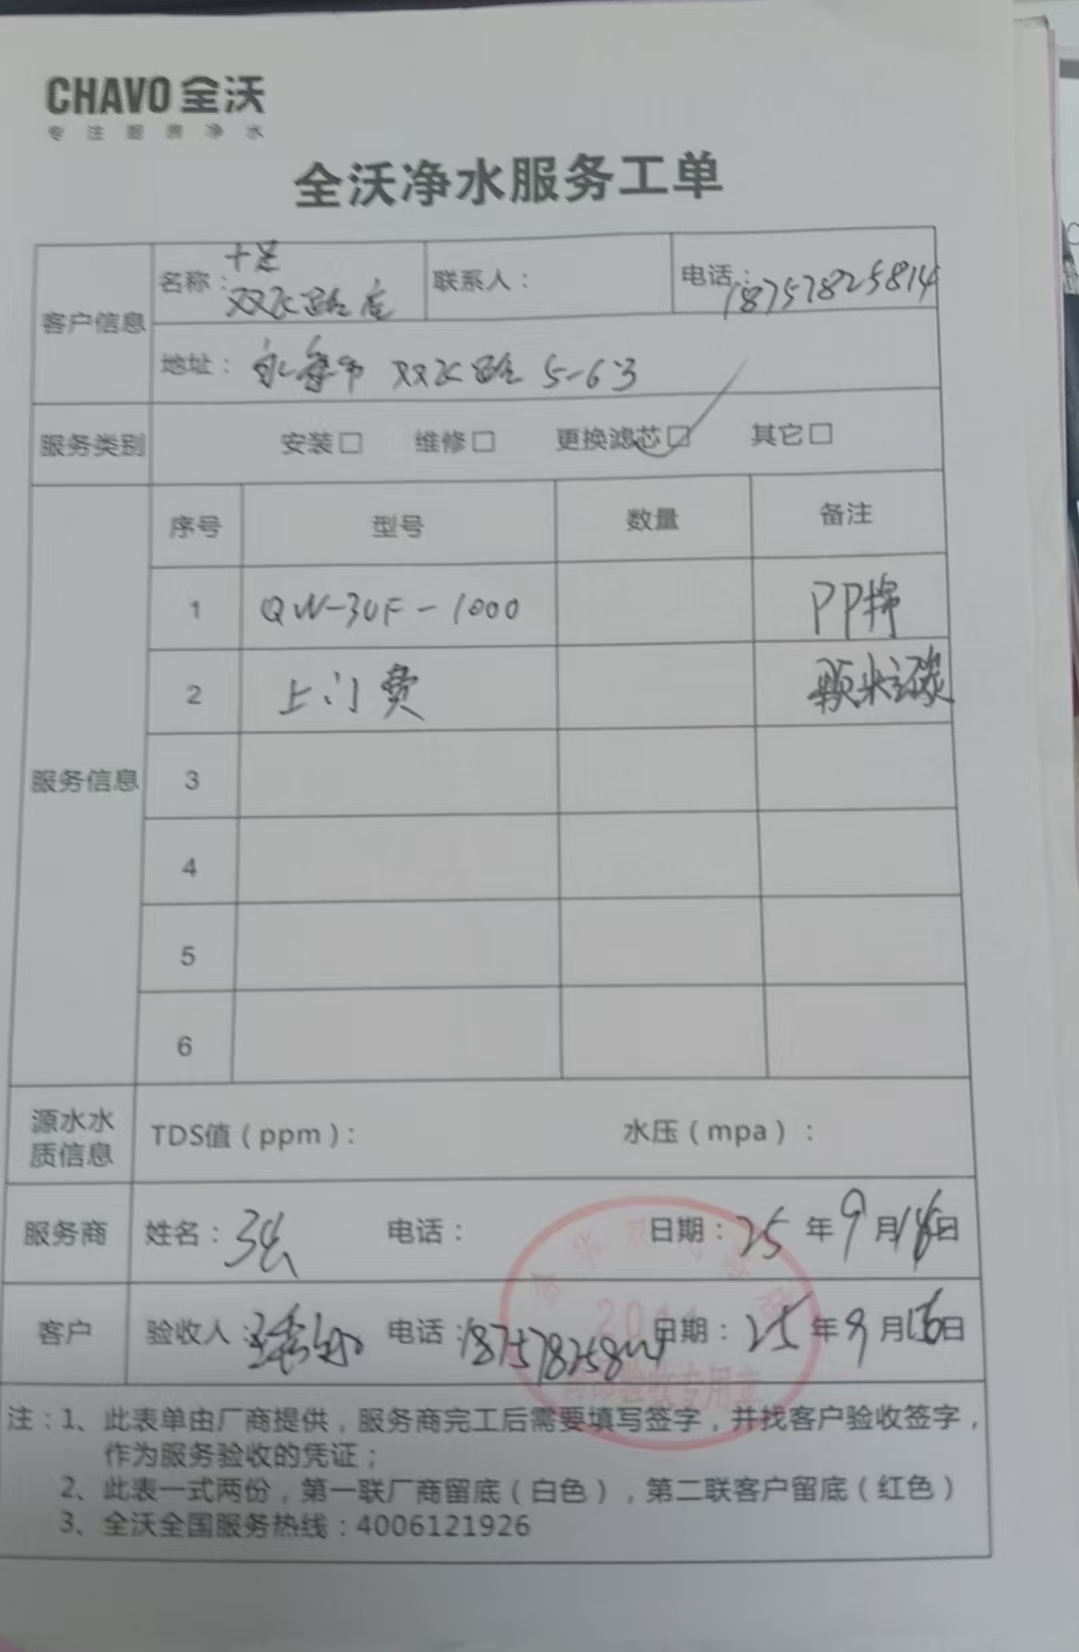 CHAVO 全沃
专注厨房净水
全沃净水服务工单
客户信息 名称：十足 双飞路店 联系人： 电话：18757825814
地址：永康市 双飞路 5-63
服务类别 安装□ 维修□ 更换滤芯□ 其它□
服务信息 序号 型号 数量 备注
1 QW-3UF-1000 PP棉
2 上门费 颗粒碳
3
4
5
6
源水水质信息 TDS值（ppm）： 水压（mpa）：
服务商 姓名：张 电话： 日期：25年9月16日
客户 验收人： 电话：18757825814 日期：25年9月16日
验收专用章
注：1、此表单由厂商提供，服务商完工后需要填写签字，并找客户验收签字，
作为服务验收的凭证；
2、此表一式两份，第一联厂商留底（白色），第二联客户留底（红色）
3、全沃全国服务热线：4006121926